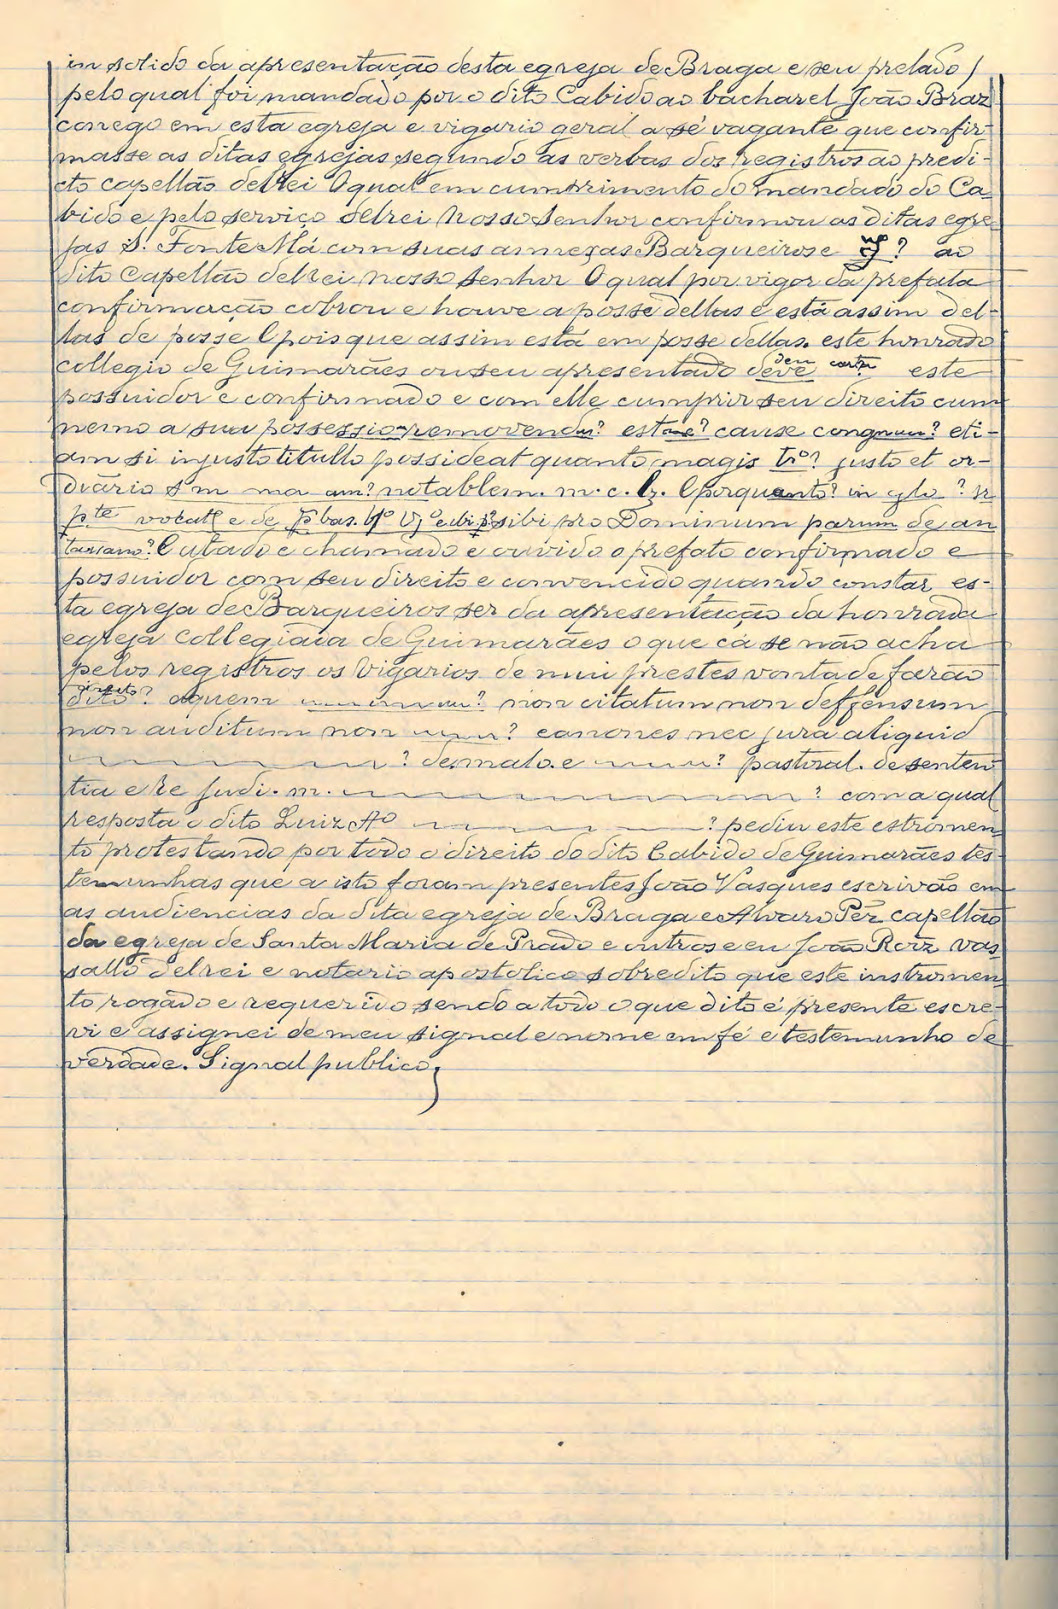 in solido da apresentação desta egreja de Braga e seu prelado)
pelo qual foi mandado por o dito Cabido ao bacharel João Braz
conego em esta egreja e vigario geral a sé vagante que confir-
masse as ditas egrejas segundo as verbas dos registros ao predi-
cto capellão delrei O qual em cumprimento do mandado do Ca-
bido e pelo serviço delrei Nosso Senhor confirmou as ditas egre-
jas S. Fonte Má com suas annexas Barqueiros e ? ao
dito Capellão delrei nosso senhor O qual por vigor da prefata
confirmação cobrou e houve a posse dellas e está assim del-
las de posse E pois que assim está em posse dellas, este honrado
collegio de Guimarães ou seu apresentado deve deu carta este
possuidor e confirmado e com elle cumprir seu direito cum
nemo a sua possessio removend ? est ? cause congnum? eti-
am si injusto titullo possideat quanto magis tro? justo et or-
diário S m ma am? notablem. m. c. E porquanto? in glo ?
pte vocatt e de sibi pro Dominum parum de an
E citado e chamado e ouvido o prefato confirmado e
possuidor com seu direito e convencido quando constar es-
ta egreja de Barqueiros ser da apresentação da honrada
egreja Collegiada de Guimarães o que cá se não acha
pelos registros os Vigarios de mui prestes vontade farão
dito? aquem ? non citatum non deffensum
non auditum non ? canones nec jura aliquid
? desmalo. e ? pastoral. de senten
tia e Re Judi. m. ? com a qual
resposta o dito Luiz Ao ? pediu este estromen
to protestando por todo o direito do dito Cabido de Guimarães tes-
temunhas que a isto foram presentes João Vasques escrivão em
as audiencias da dita egreja de Braga e Alvaro Pẽz capellão
da egreja de Santa Maria de Prado e outros e eu João Roiz vas
sallo delrei e notario apostolico sobredito que este instromen
to rogado e requerido sendo a todo o que dito é presente escre-
vi e assignei de meu signal e nome em fé e testemunho de
verdade. Signal publico